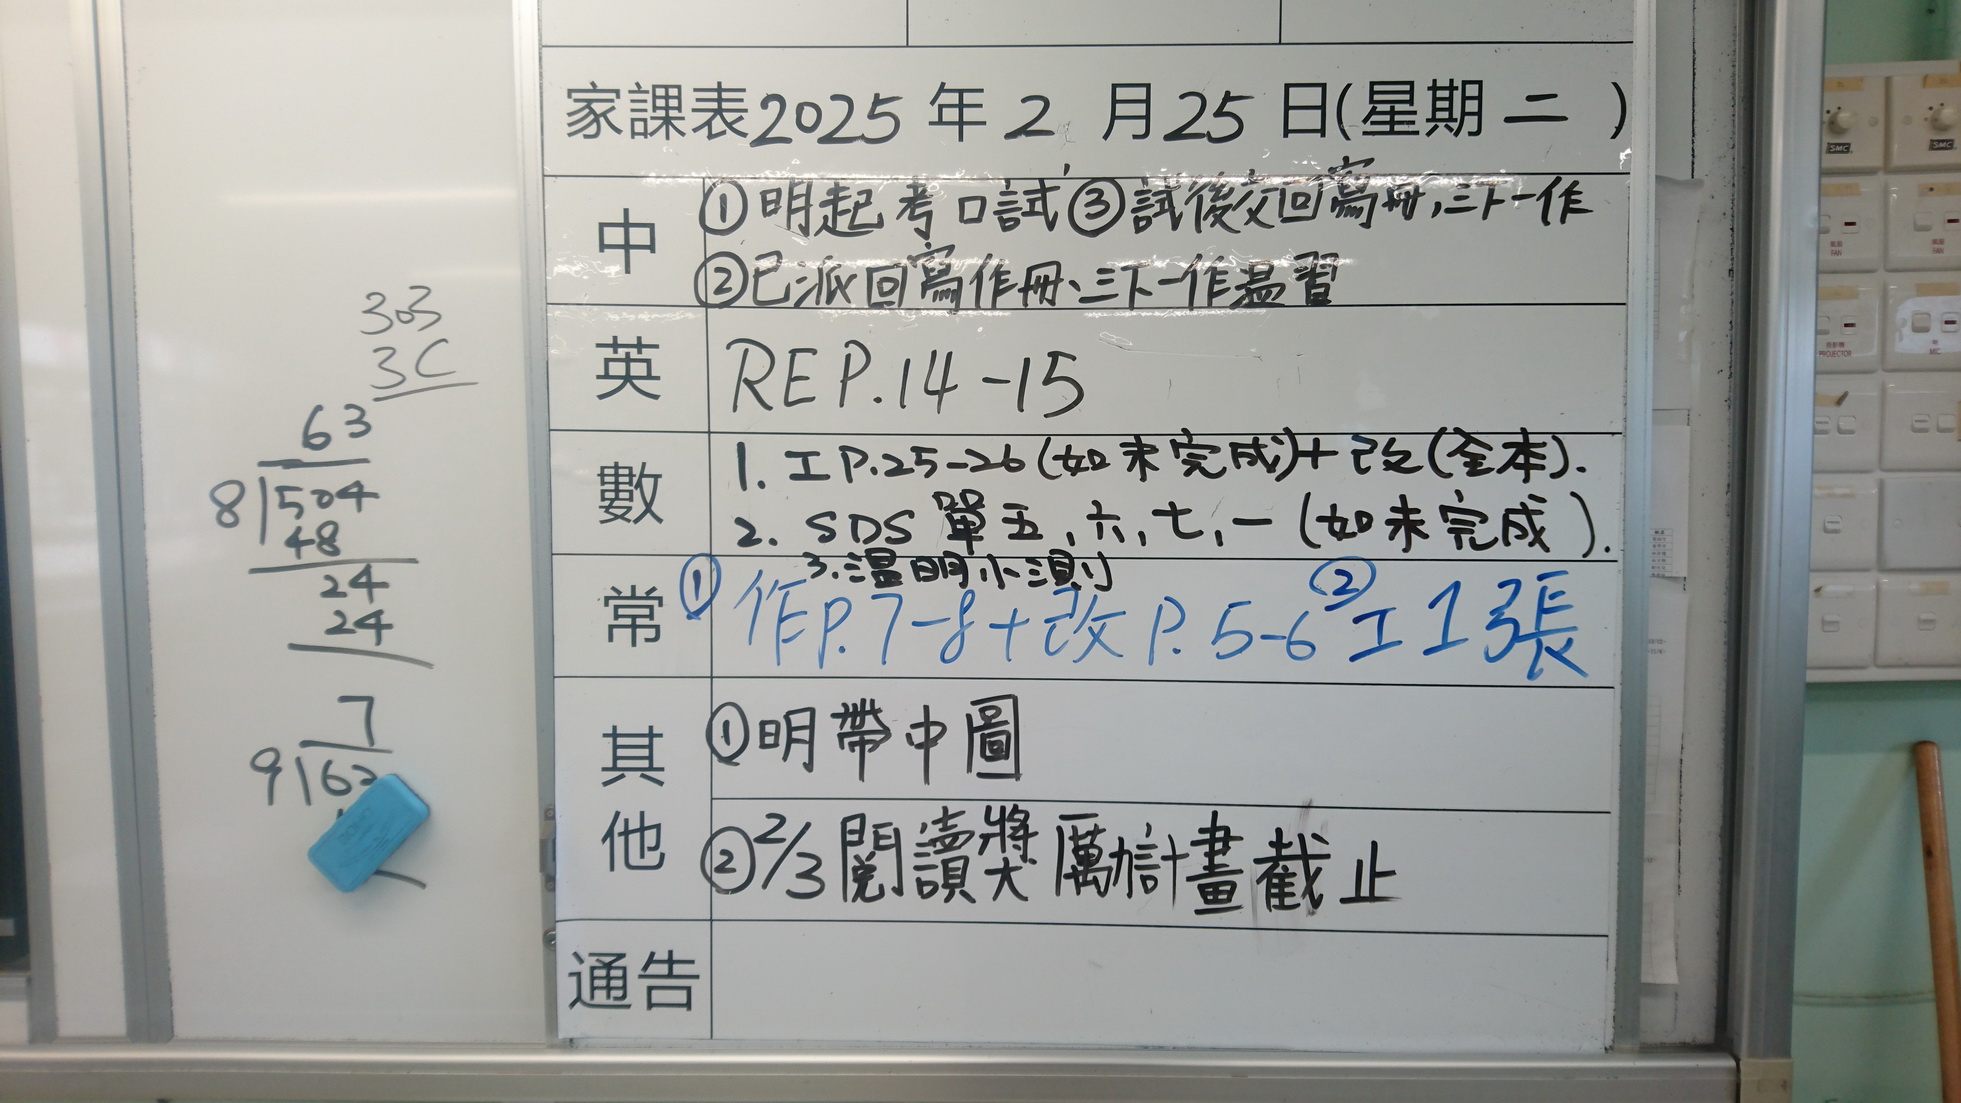 家課表2025年2月25日(星期二)
中
①明起考口試③試後交回寫冊,三下一作
②已派回寫作冊、三下一作溫習
英
RE P.14-15
數
1. 工 P.25-26(如未完成)+改(全本).
2. SDS 單五,六,七,一(如未完成).
3.溫明小測
常
①作P.7-8+改 P.5-6 ②工1張
其他
①明帶中圖
②2/3閱讀獎勵計畫截止
通告
303
3C
63
8 504
48
24
24
7
9 63
SMC
SMC
FAN
FAN
PROJECTOR
MIC